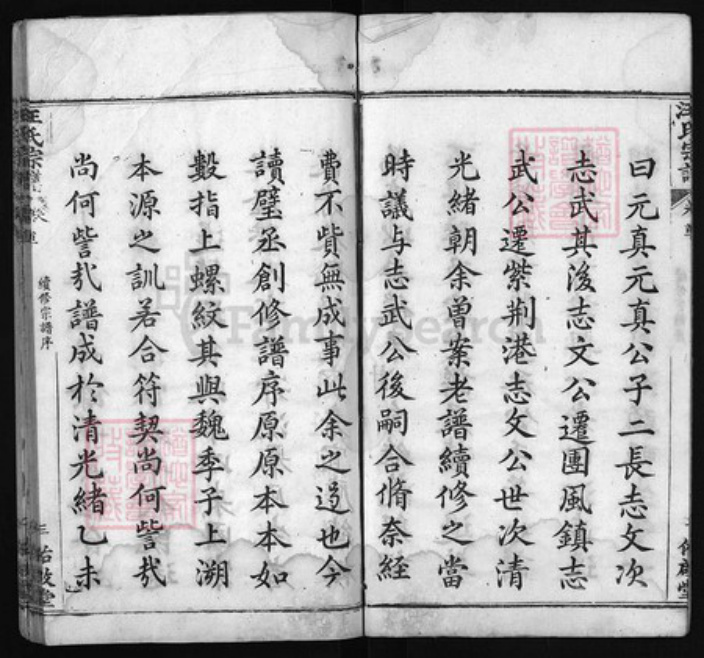 曰元真元真公子二長志文次
志武其後志文公遷團風鎮志
武公遷紫荆港志文公世次清
光緒朝余曽案老譜續修之當
時議与志武公後嗣合脩奈經
費不貲無成事此余之過也今
讀璧丞創修譜序原原本本如
數指上螺紋其與魏季子上溯
本源之訓若合符契尚何訾㢤
尚何訾㢤譜成於清光緒乙未
續修宗譜序
汪氏宗譜
汪氏宗
FamilySearch